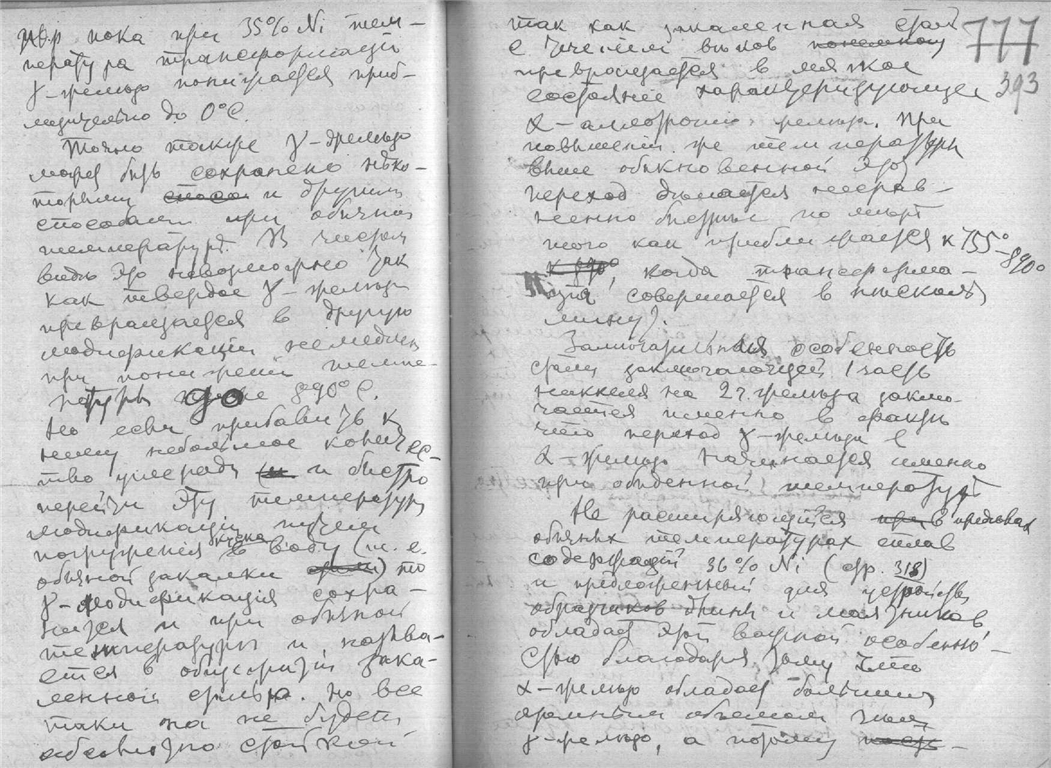 пока при 35% Ni тем-
пература трансформаціи
γ-желѣза понижается приб-
лизительно до 0°C.
Точно также γ-желѣзо
может быть сохранено нѣко-
торыми способ и другими
способами при обычной
температурѣ. В чистом
видѣ это невозможно так
как твердое γ-желѣзо
превращается в другую
модификацію немедленно
при пониженіи темпе-
ратуры до 890°C.
Но если прибавить к
нему небольшое количес-
тво углерода и быстро
перейти эту температуру
модификаціи путем
погруженія куска в воду (т. е.
обычной закалки) то
γ-модификація сохра-
няется и при обычной
температуры и называ-
ется в общежитіи зака-
ленной сталью. Но все
таки она не будет
абсолютно стойкой
так как закаленная сталь
с теченіем вѣков понемногу
превращается в мягкое
состояніе характеризующее
α-аллотропію желѣза. При
повышеніи же температуры
выше обыкновенной этот
переход дѣлается несрав-
ненно быстрѣе по мѣрѣ
того как приближается к 755°–890°
к 890°, когда трансформа-
ція совершается в нѣсколько
минут.
Замѣчательная особенность
стали заключающей 1 часть
никкеля на 2 ч. желѣза заклю-
чается именно в
что переход γ-желѣза в
α-желѣзо начинается именно
при обыденной температурѣ
Не расширяющійся при в предѣлах
обычных температурах сплав
содержащій 36% Ni (стр. 318)
и предложенный для устройства
образчиков длины и маятников
обладает этой важной особенно-
стью благодаря тому что
α-желѣзо обладает большим
объемом чѣм
γ-желѣзо, а потому
777
393